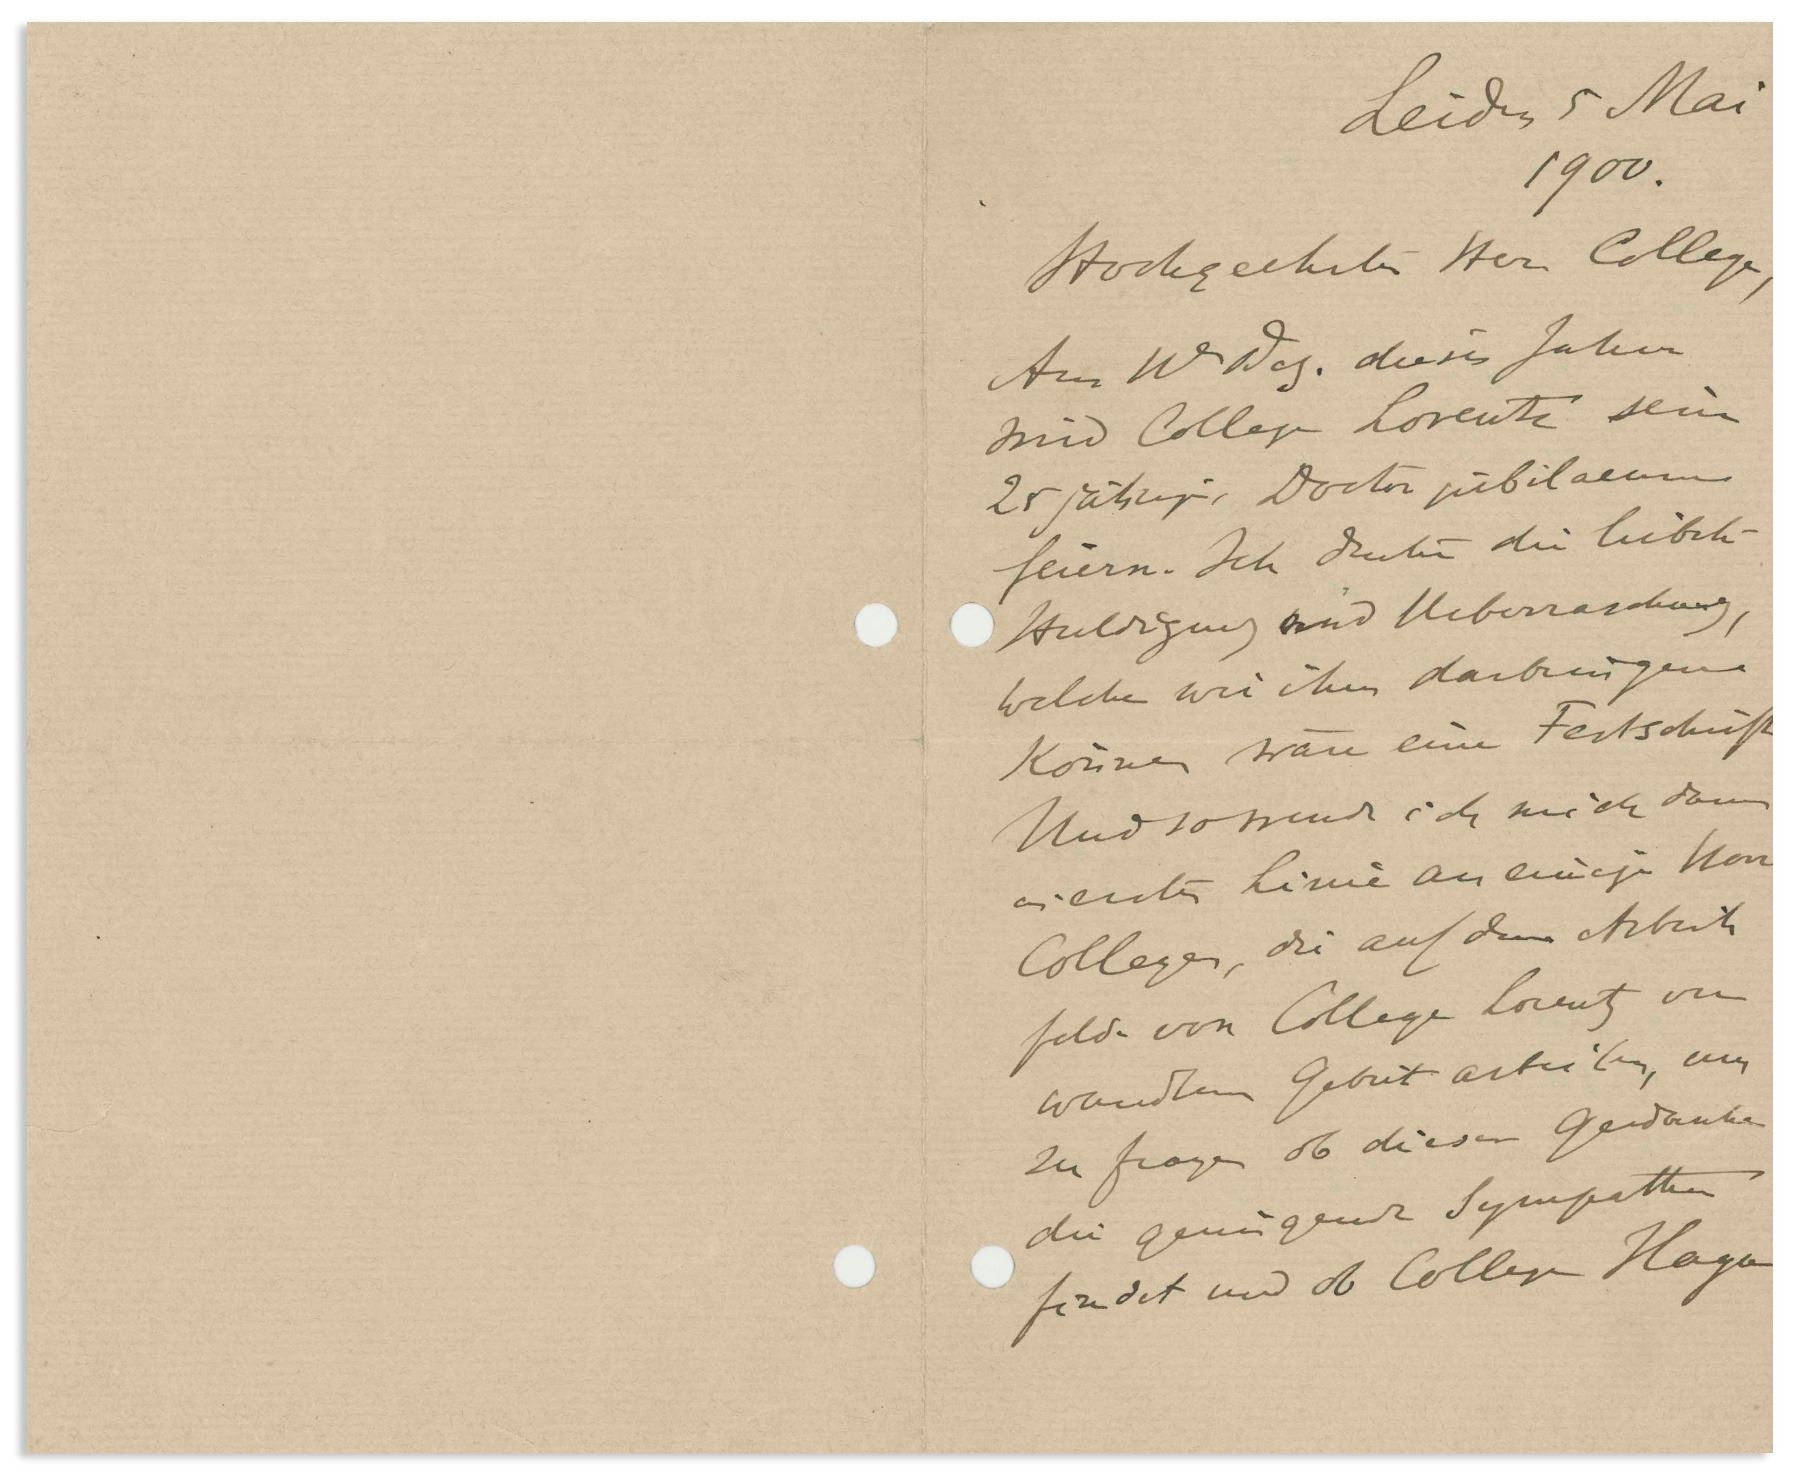 Leiden 5 Mai
1900.
Hochgeehrter Herr College,
Am 11n Dez. dieses Jahres
wird College Lorentz sein
25 jähriges Doctorjubilaeum
feiern. Ich denke die liebste
Huldigung und Ueberraschung,
welche wir ihm darbringen
können wäre eine Festschrift
Und so wende ich mich dann
in erster Linie an einige Herrn
Collegen, die auf dem Arbeits
felde von College Lorentz ver
wandtem Gebiet arbeiten, um
zu fragen ob dieser Gedanke
die genügende Sympathie
findet und ob College Haga